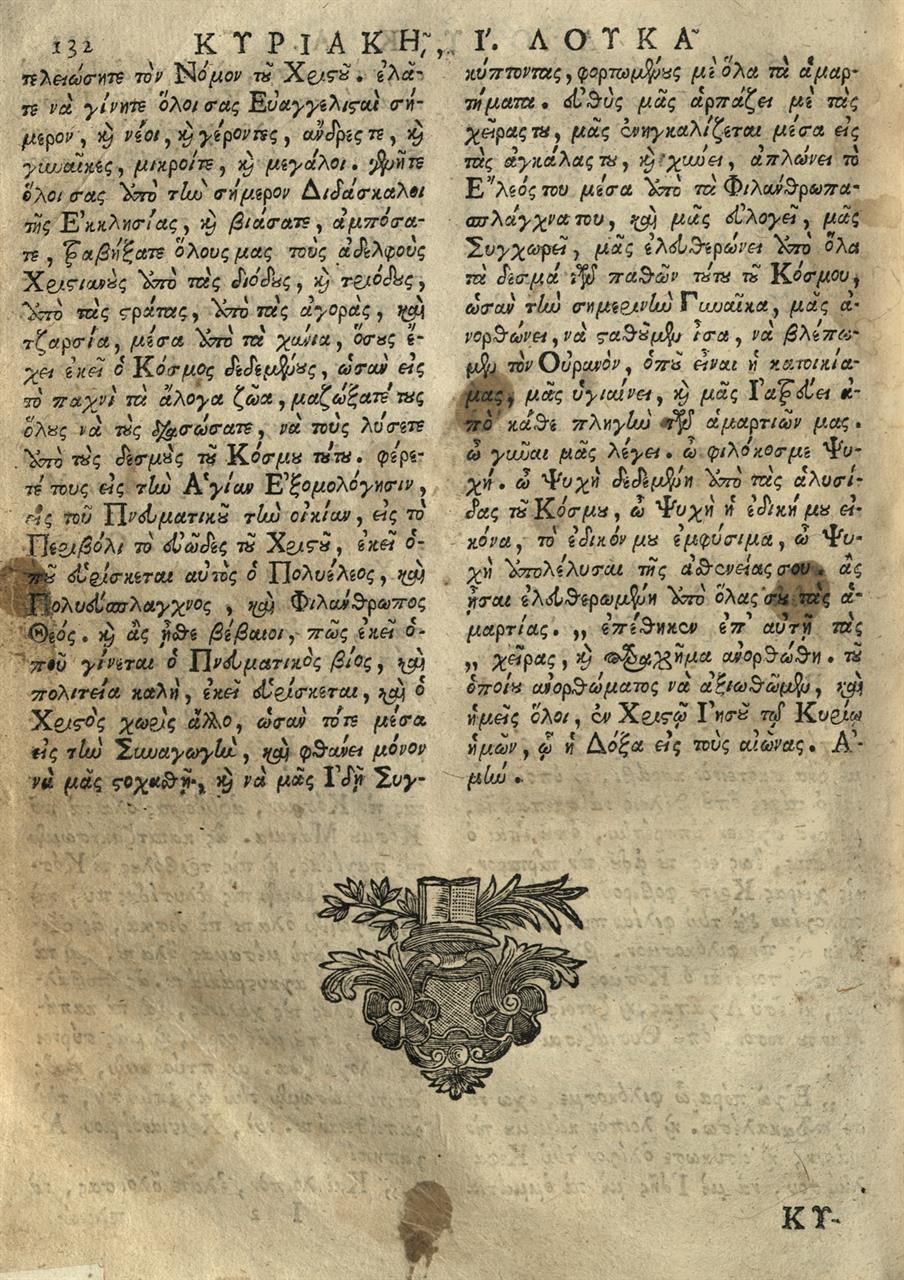 132 ΚΥΡΙΑΚΗ͂, Ι'. ΛΟΥΚΑ͂
τελειώσητε τὸν Νόμον τοῦ Χριστοῦ. ἐλᾶ-
τε νὰ γίνητε ὅλοι σας Εὐαγγελισταὶ σή-
μερον, καὶ νέοι, καὶ γέροντες, ἄνδρες τε, καὶ
γυναῖκες, μικροίτε, καὶ μεγάλοι. γενῆτε
ὅλοι σας ἀπὸ τὴν σήμερον Διδάσκαλοι
τῆς Ἐκκλησίας, καὶ βιάσατε, ἀμπόσα-
τε, τραβήξατε ὅλους μας τοὺς ἀδελφοὺς
Χριστιανοὺς ἀπὸ τὰς διόδους, καὶ τριόδους,
ἀπὸ τὰς στράτας, ἀπὸ τὰς ἀγορὰς, καὶ
τζαρσία, μέσα ἀπὸ τὰ χάνια, ὅσους ἔ-
χει ἐκεῖ ὁ Κόσμος δεδεμένους, ὡσὰν εἰς
τὸ παχνὶ τὰ ἄλογα ζῶα, μαζώξατέ τους
ὅλους νὰ τοὺς διασώσατε, νὰ τοὺς λύσετε
ἀπὸ τοὺς δεσμοὺς τοῦ Κόσμου τούτου. φέρε-
τέ τους εἰς τὴν Ἁγίαν Ἐξομολόγησιν,
εἰς τοῦ Πνευματικοῦ τὴν οἰκίαν, εἰς τὸ
Περιβόλι τὸ εὐῶδες τοῦ Χριστοῦ, ἐκεῖ ὁ-
ποῦ εὑρίσκεται αὐτὸς ὁ Πολυέλεος, καὶ
Πολυεύσπλαγχνος, καὶ Φιλάνθρωπος
Θεός. καὶ ἂς ἦσθε βέβαιοι, πῶς ἐκεῖ ὁ-
ποῦ γίνεται ὁ Πνευματικὸς βίος, καὶ
πολιτεία καλὴ, ἐκεῖ εὑρίσκεται, καὶ ὁ
Χριστὸς χωρὶς ἄλλο, ὡσὰν τότε μέσα
εἰς τὴν Συναγωγὴν, καὶ φθάνει μόνον
νὰ μᾶς στοχασθῇ, καὶ νὰ μᾶς Ἰδῇ Συγ-
κύπτοντας, φορτωμένους μὲ ὅλα τὰ ἁμαρ-
τήματα. εὐθὺς μᾶς ἁρπάζει μὲ τὰς
χεῖρας του, μᾶς ἐνηγκαλίζεται μέσα εἰς
τὰς ἀγκάλας του, καὶ χύνει, ἁπλώνει τὸ
Ἔλεός του μέσα ἀπὸ τὰ Φιλάνθρωπα-
σπλάγχνα του, καὶ μᾶς εὐλογεῖ, μᾶς
Συγχωρεῖ, μᾶς ἐλευθερώνει ἀπὸ ὅλα
τὰ δεσμά τῶν παθῶν τούτου τοῦ Κόσμου,
ὡσὰν τὴν σημερινὴν Γυναῖκα, μᾶς ἀ-
νορθώνει, νὰ σταθοῦμεν ἴσα, νὰ βλέπω-
μεν τὸν Οὐρανὸν, ὁποῦ εἶναι ἡ κατοικία-
μας, μᾶς ὑγιαίνει, καὶ μᾶς Ἰατρεύει ἀ-
πὸ κάθε πληγὴν τῶν ἁμαρτιῶν μας.
ὦ γύναι μᾶς λέγει. ὦ φιλόκοσμε Ψυ-
χή. ὦ Ψυχὴ δεδεμένη ἀπὸ τὰς ἁλυσί-
δας τοῦ Κόσμου, ὦ Ψυχὴ ἡ ἐδική μου εἰ-
κόνα, τὸ ἐδικόν μου ἐμφύσιμα, ὦ Ψυ-
χὴ ἀπολέλυσαι τῆς ἀσθενείας σου. ἂς
ἦσαι ἐλευθερωμένη ἀπὸ ὅλας σου τὰς ἁ-
μαρτίας. ,, ἐπέθηκεν ἐπ' αὐτῇ τὰς
,, χεῖρας, καὶ παραχρῆμα ἀνορθώθη. τοῦ
ὁποίου ἀνορθώματος νὰ ἀξιωθῶμεν, καὶ
ἡμεῖς ὅλοι, ἐν Χριστῷ Ἰησοῦ τῷ Κυρίῳ
ἡμῶν, ᾧ ἡ Δόξα εἰς τοὺς αἰῶνας. Ἀ-
μήν.
ΚΥ-